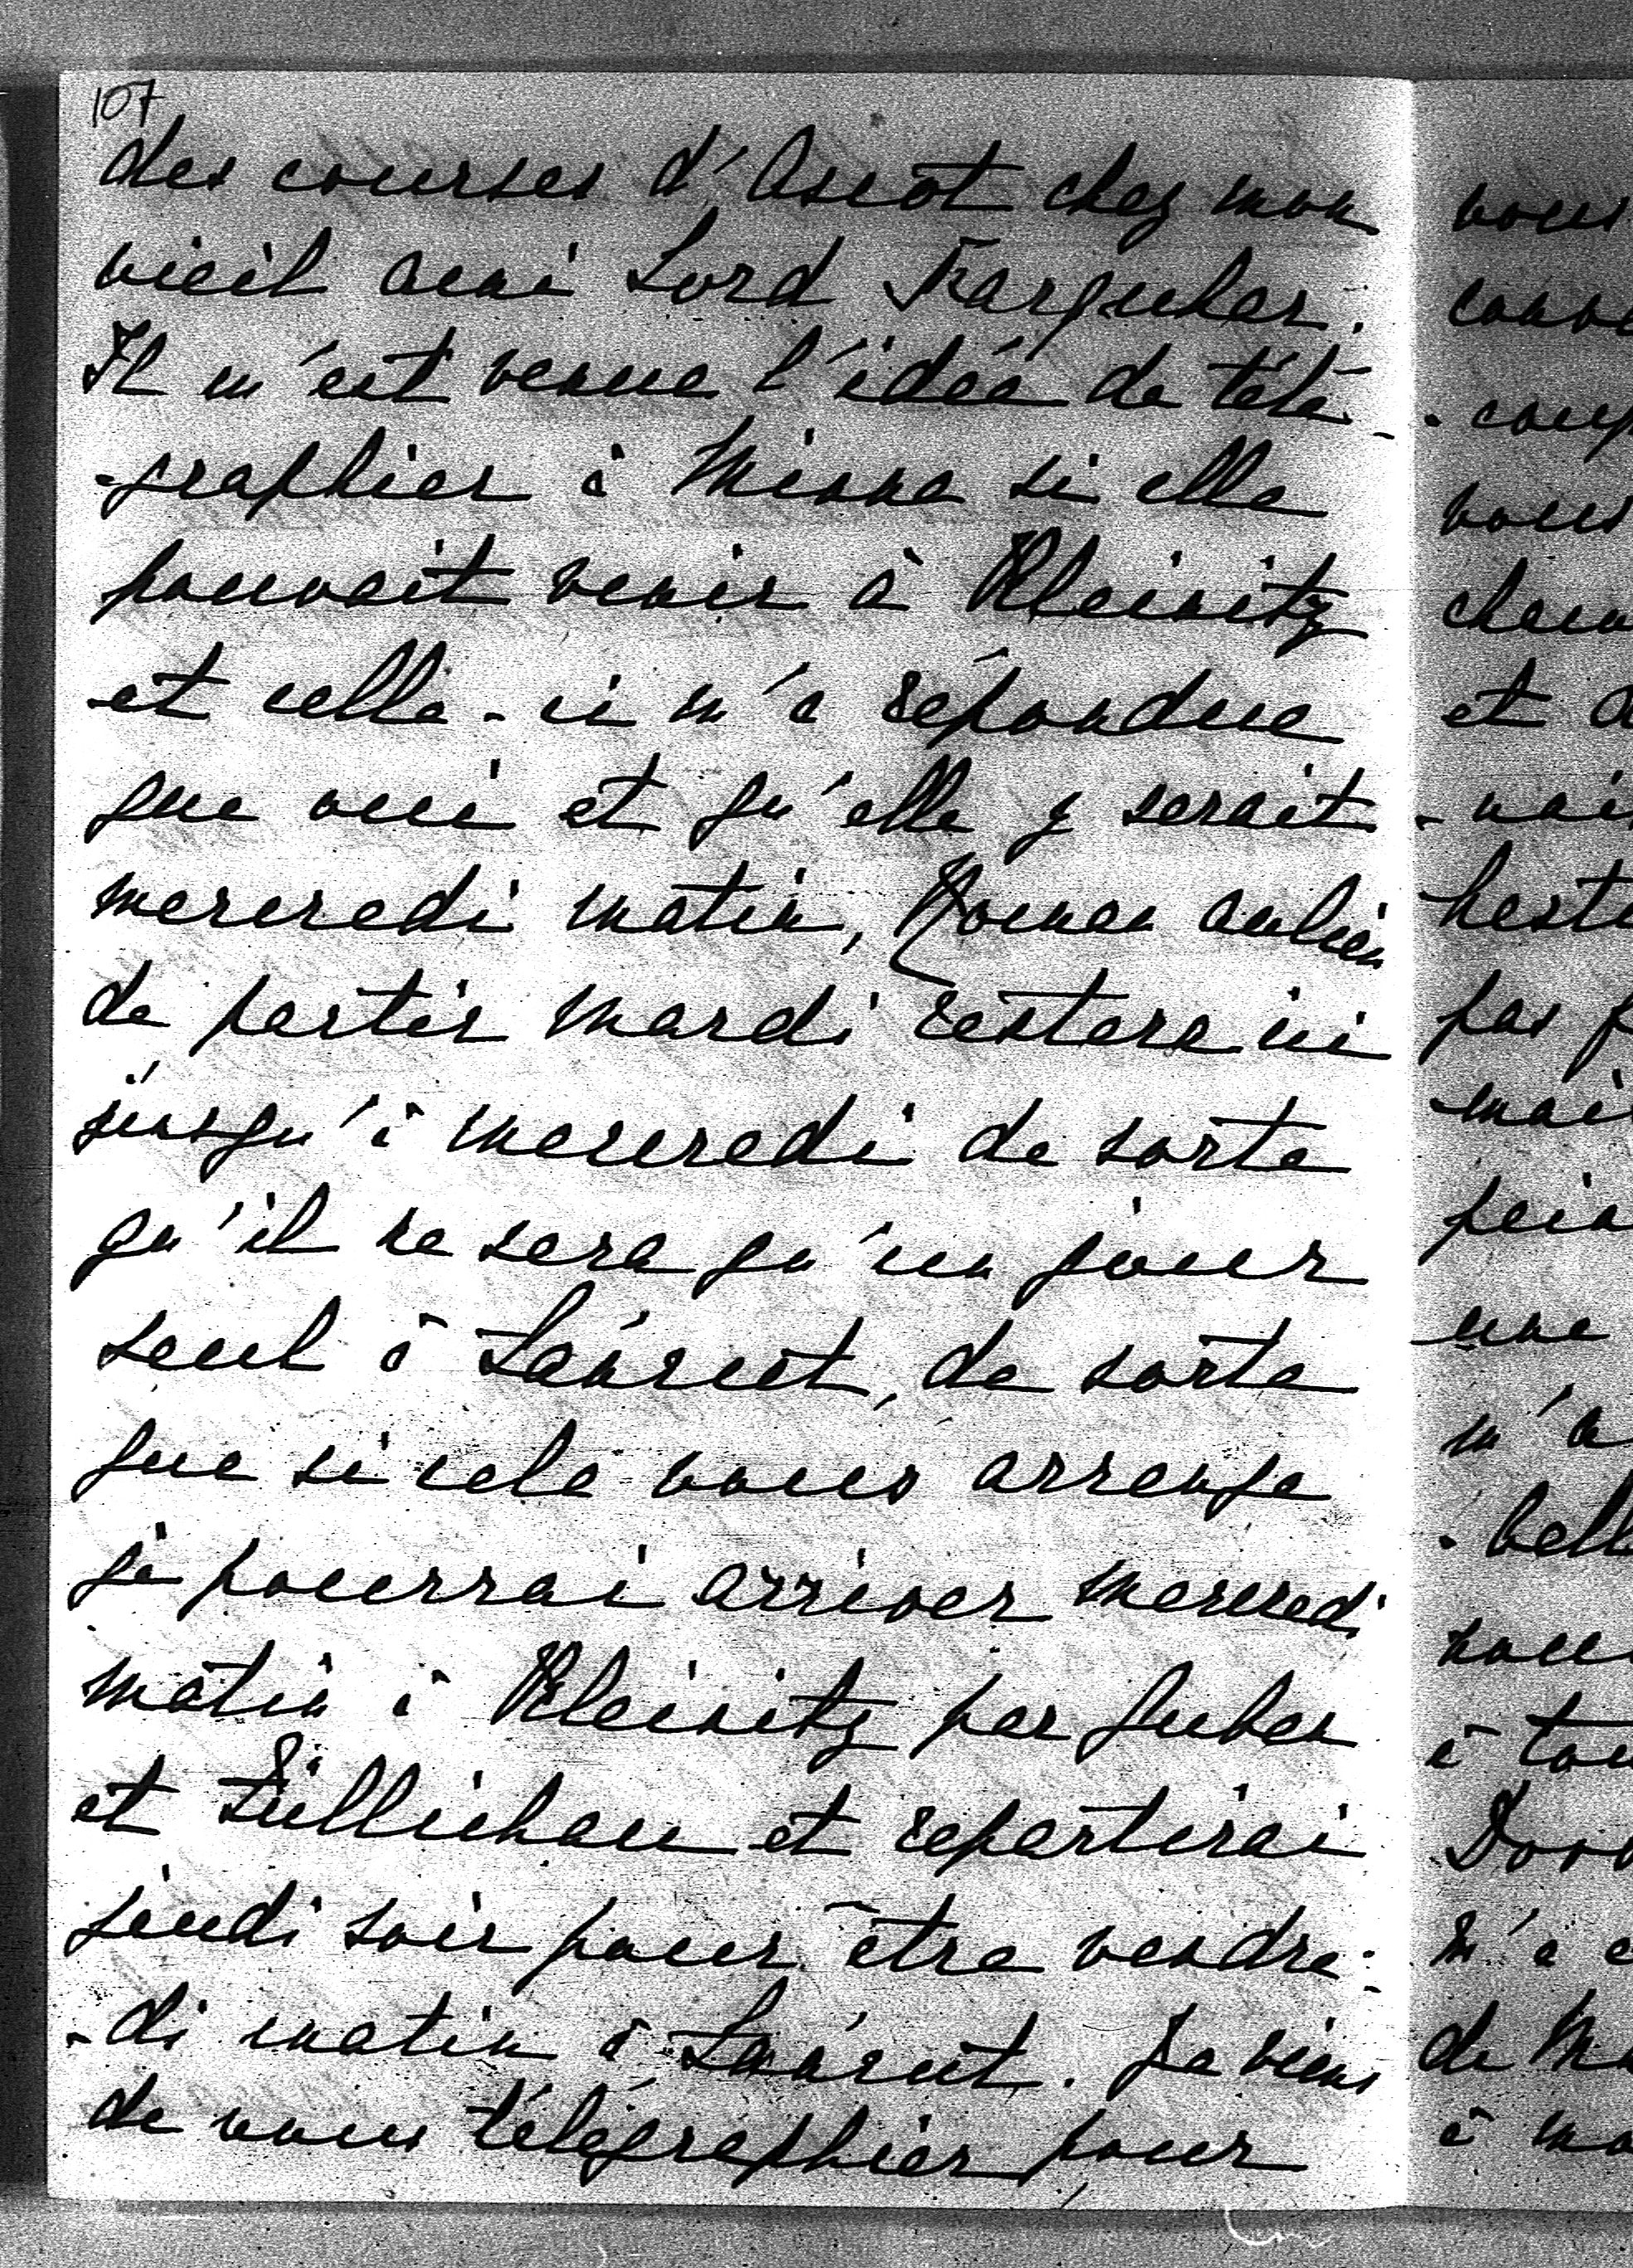 107
des courses d'Ascot chez mon
vieil ami Lord Farquhar.
Il m'est venue l'idée de télé-
-graphier à Minna si elle
pouvait venir à Kleinitz
et celle-ci m'a répondue
que oui et qu'elle y serait
mercredi matin, Roman aulieu
de partir mardi restera ici
jusqu'à mercredi de sorte
qu'il ne sera qu'un jour
seul à Łańcut, de sorte
que si cela vous arrange
je pourrai arriver mercredi
matin à Kleinitz par Guben
et Züllichau et repartirai
jeudi soir pour être vendre-
-di matin à Łańcut. Je viens
de vous télégraphier pour
vous
et
pas
une
m'a
à
m'a
de
à